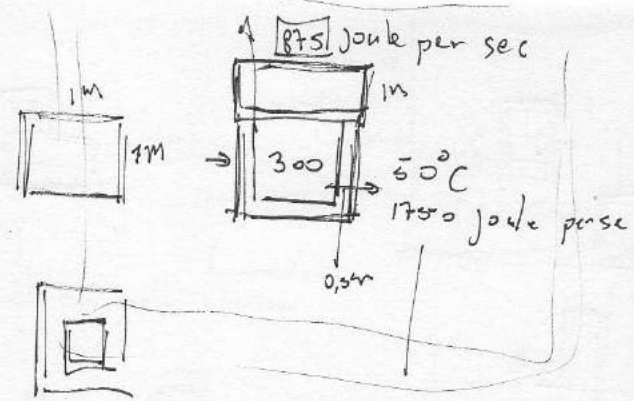 875 joule per sec
1m
1m
1M
300
50°C
1750 joule per se
0,5m